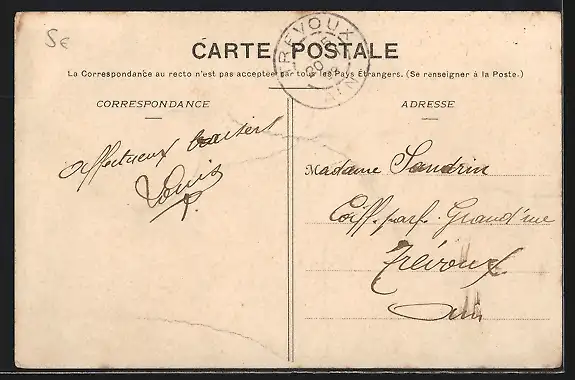 5€
TREVOUX
AIN
CARTE POSTALE
La Correspondance au recto n'est pas acceptée par tous les Pays Étrangers. (Se renseigner à la Poste.)
CORRESPONDANCE
ADRESSE
affectueux baisers
Louis
Madame Sandrin
Coiff. parf. Grand'rue
Trévoux
Ain